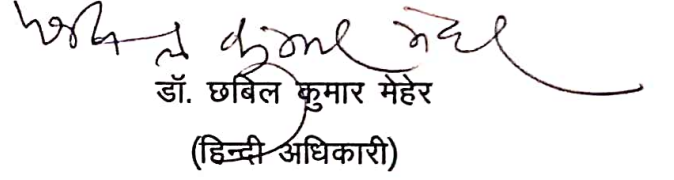 छबिल कुमार मेहेर
डॉ. छबिल कुमार मेहेर
(हिन्दी अधिकारी)